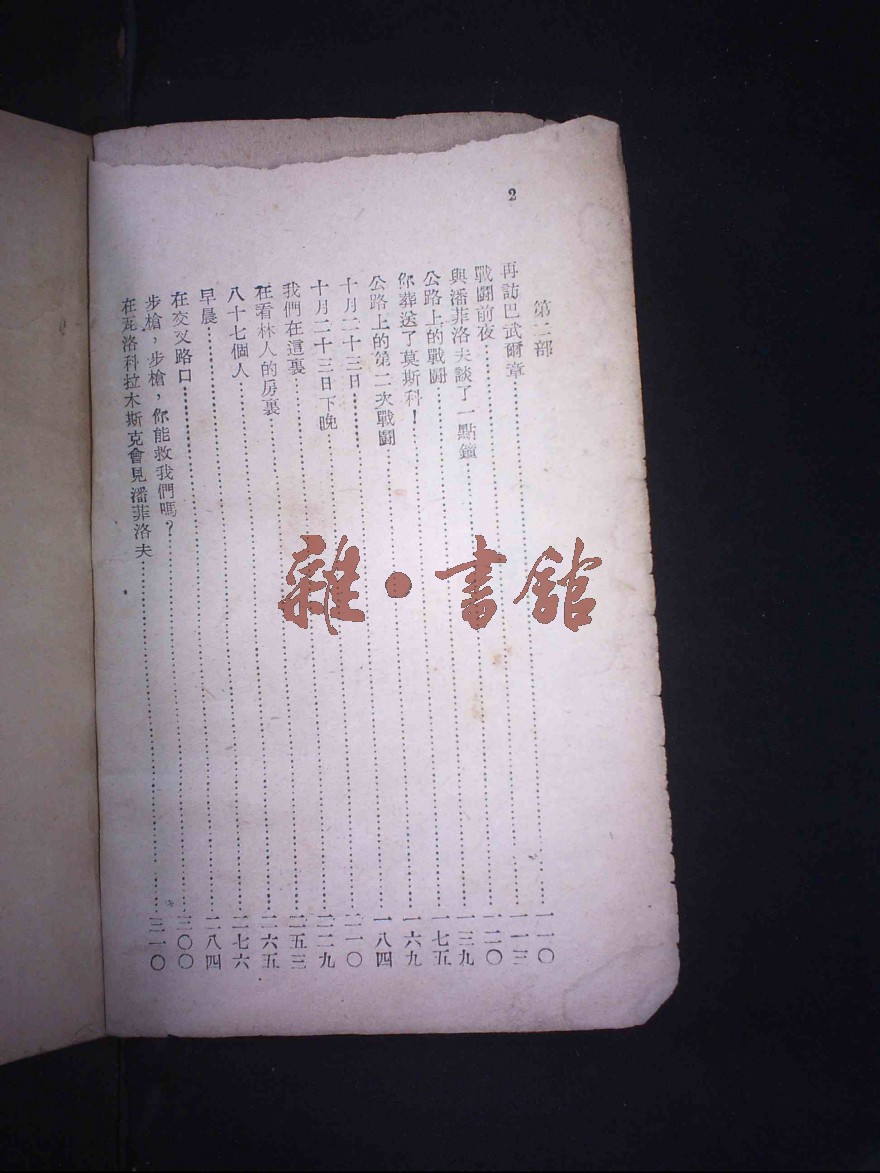 2
第二部
再訪巴武爾章……一一〇
戰鬭前夜……一一三
與潘菲洛夫談了一點鐘……一二〇
公路上的戰鬭……一三九
你葬送了莫斯科！……一七五
公路上的第二次戰鬭……一六九
十月二十三日……一八四
十月二十三日下晚……二一〇
我們在這裏……二二九
在看林人的房裏……二五三
八十七個人……二六五
早晨……二七六
在交叉路口……二八四
步槍，步槍，你能救我們嗎？……三〇〇
在瓦洛科拉木斯克會見潘菲洛夫……三一〇
雜·書館